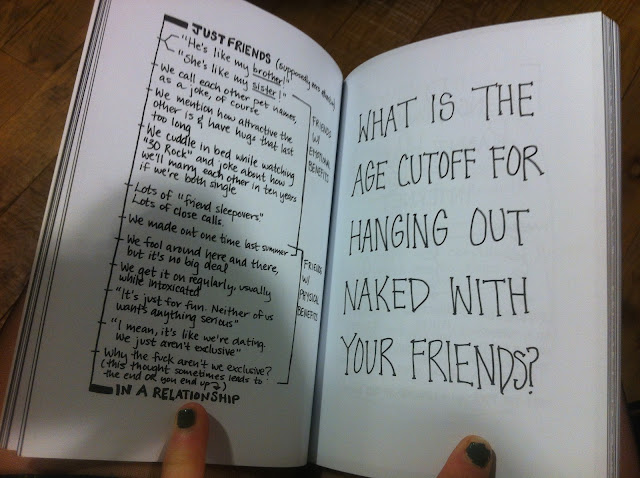 JUST FRIENDS (supposedly zero attraction)
"He's like my brother!"
"She's like my sister!"
We call each other pet names,
as a joke, of course
We mention how attractive the
other is & have hugs that last
too long
We cuddle in bed while watching
"30 Rock" and joke about how
we'll marry each other in ten years
if we're both single
Lots of "friend sleepovers"
Lots of close calls
We made out one time last summer
FRIENDS
W/
EMOTIONAL
BENEFITS
We fool around here and there,
but it's no big deal
We get it on regularly, usually
while intoxicated
"It's just for fun. Neither of us
wants anything serious"
"I mean, it's like we're dating.
We just aren't exclusive"
Why the fuck aren't we exclusive?
(this thought sometimes leads to
the end or you end up
IN A RELATIONSHIP
FRIENDS
W/
PHYSICAL
BENEFITS
WHAT IS THE
AGE CUTOFF FOR
HANGING OUT
NAKED WITH
YOUR FRIENDS?